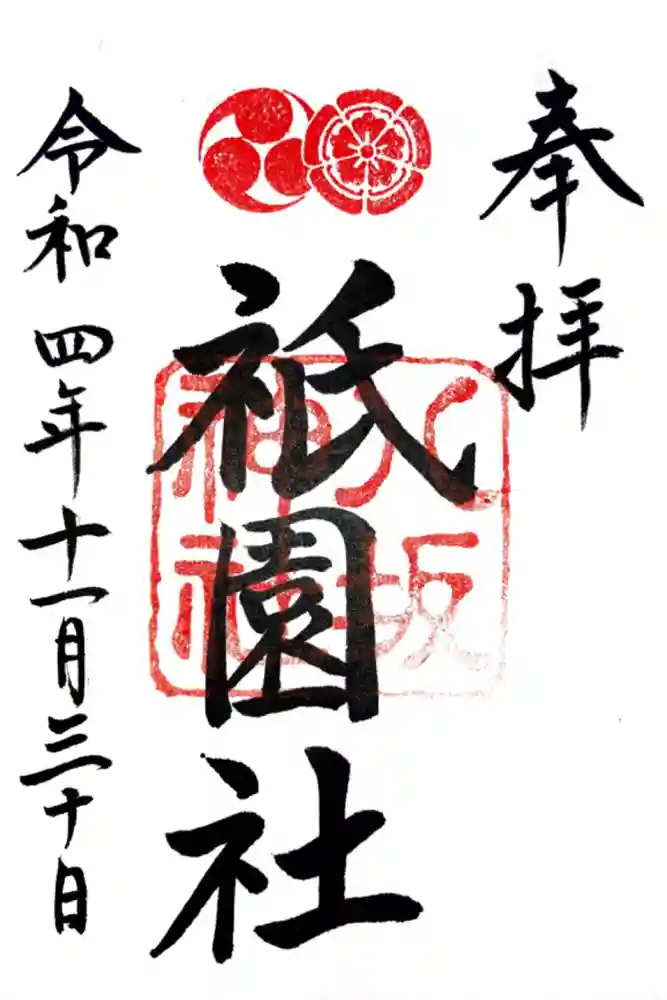 奉拝
祇園社
八坂
神社
令和四年十一月三十日